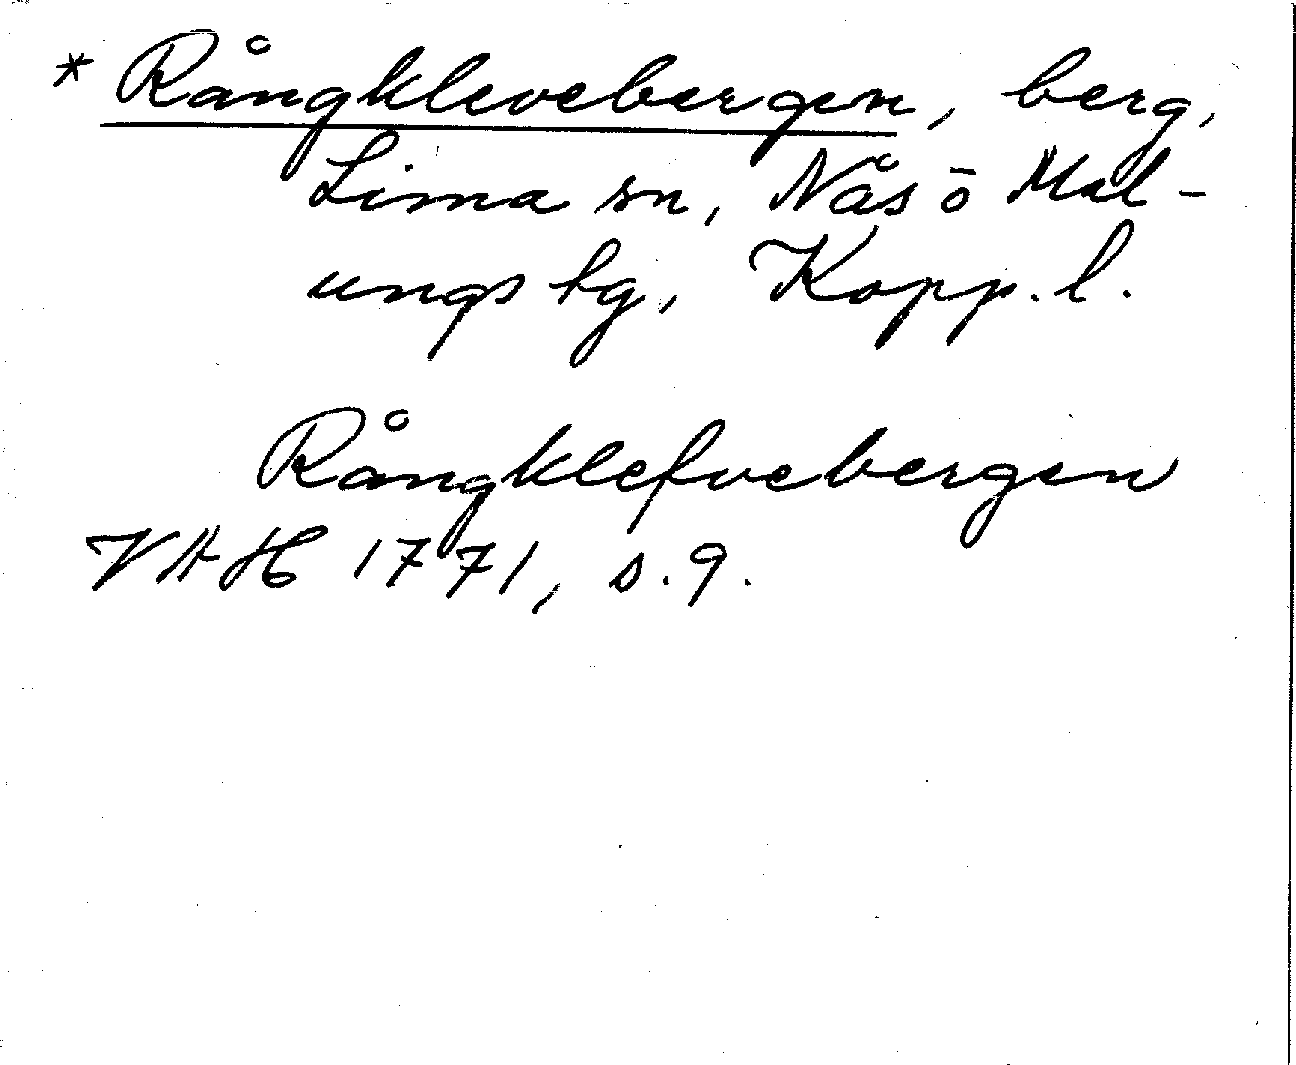 * Rångklevebergen, berg,
Lima sn, Nås ō Mal-
ungs tg, Kopp. l.
Rångklefvebergen
VAH 1771, s. 9.